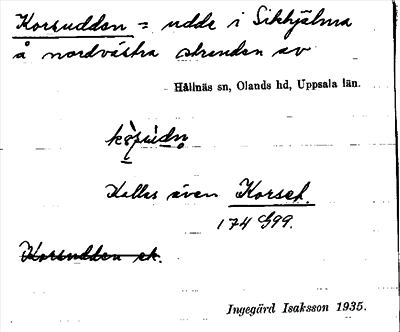 Korsudden = udde i Sikhjälma
å nordvästra stranden av
Hållnäs sn, Olands hd, Uppsala län.
Kallas även Korset.
174 G99.
Korsudden sk.
Ingegärd Isaksson 1935.